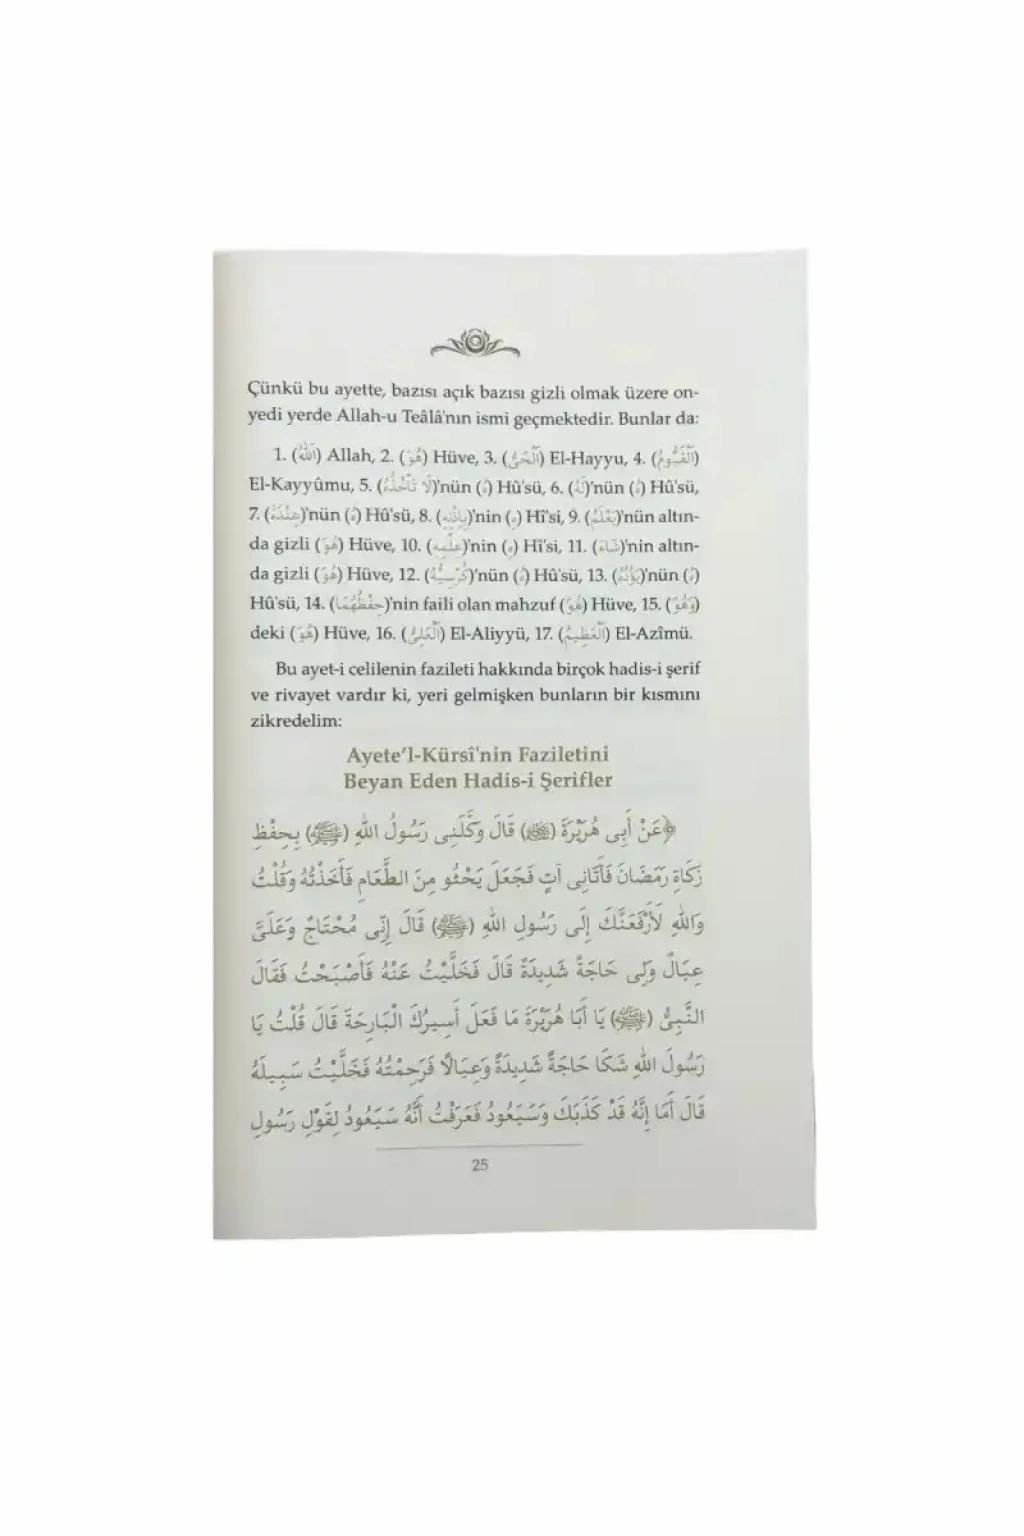 Çünkü bu ayette, bazısı açık bazısı gizli olmak üzere on-
yedi yerde Allah-u Teâlâ'nın ismi geçmektedir. Bunlar da:
1. (اَللّٰهُ) Allah, 2. (هُوَ) Hüve, 3. (اَلْحَيُّ) El-Hayyu, 4. (اَلْقَيُّومُ)
El-Kayyûmu, 5. (لَا تَأْخُذُهُ)'nün (هُ) Hû'sü, 6. (لَهُ)'nün (هُ) Hû'sü,
7. (عِنْدَهُ)'nün (هُ) Hû'sü, 8. (بِاِذْنِهِ)'nin (هِ) Hî'si, 9. (يَعْلَمُ)'nün altın-
da gizli (هُوَ) Hüve, 10. (عِلْمِهِ)'nin (هِ) Hî'si, 11. (شَاءَ)'nin altın-
da gizli (هُوَ) Hüve, 12. (كُرْسِيُّهُ)'nün (هُ) Hû'sü, 13. (يَؤُدُهُ)'nün (هُ)
Hû'sü, 14. (حِفْظُهُمَا)'nin faili olan mahzuf (هُوَ) Hüve, 15. (وَهُوَ)
deki (هُوَ) Hüve, 16. (اَلْعَلِيُّ) El-Aliyyü, 17. (اَلْعَظِيمُ) El-Azîmü.
Bu ayet-i celilenin fazileti hakkında birçok hadis-i şerif
ve rivayet vardır ki, yeri gelmişken bunların bir kısmını
zikredelim:
Ayete'l-Kürsî'nin Faziletini
Beyan Eden Hadis-i Şerifler
﴿عَنْ أَبِى هُرَيْرَةَ (ﷺ) قَالَ وَكَّلَنِى رَسُولُ اللهِ (ﷺ) بِحِفْظِ
زَكَاةِ رَمَضَانَ فَأَتَانِى آتٍ فَجَعَلَ يَحْثُو مِنَ الطَّعَامِ فَأَخَذْتُهُ وَقُلْتُ
وَاللهِ لَأَرْفَعَنَّكَ إِلَى رَسُولِ اللهِ (ﷺ) قَالَ إِنِّى مُحْتَاجٌ وَعَلَىَّ
عِيَالٌ وَلِى حَاجَةٌ شَدِيدَةٌ قَالَ فَخَلَّيْتُ عَنْهُ فَأَصْبَحْتُ فَقَالَ
النَّبِىُّ (ﷺ) يَا أَبَا هُرَيْرَةَ مَا فَعَلَ أَسِيرُكَ الْبَارِحَةَ قَالَ قُلْتُ يَا
رَسُولَ اللهِ شَكَا حَاجَةً شَدِيدَةً وَعِيَالًا فَرَحِمْتُهُ فَخَلَّيْتُ سَبِيلَهُ
قَالَ أَمَا إِنَّهُ قَدْ كَذَبَكَ وَسَيَعُودُ فَعَرَفْتُ أَنَّهُ سَيَعُودُ لِقَوْلِ رَسُولِ
25